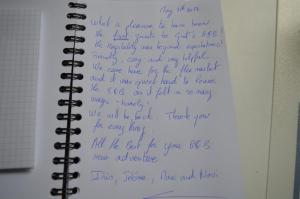 May
What a pleasure to have been
the first guests to
the hospitality was beyond expectations!
friendly, cosy and very helpful.
We came here for the flea market
and it was quite hard to leave
the B&B as it felt in so many
ways - homely!
We will be back. Thank you
for everything
All the best for your B&B
new adventure
and